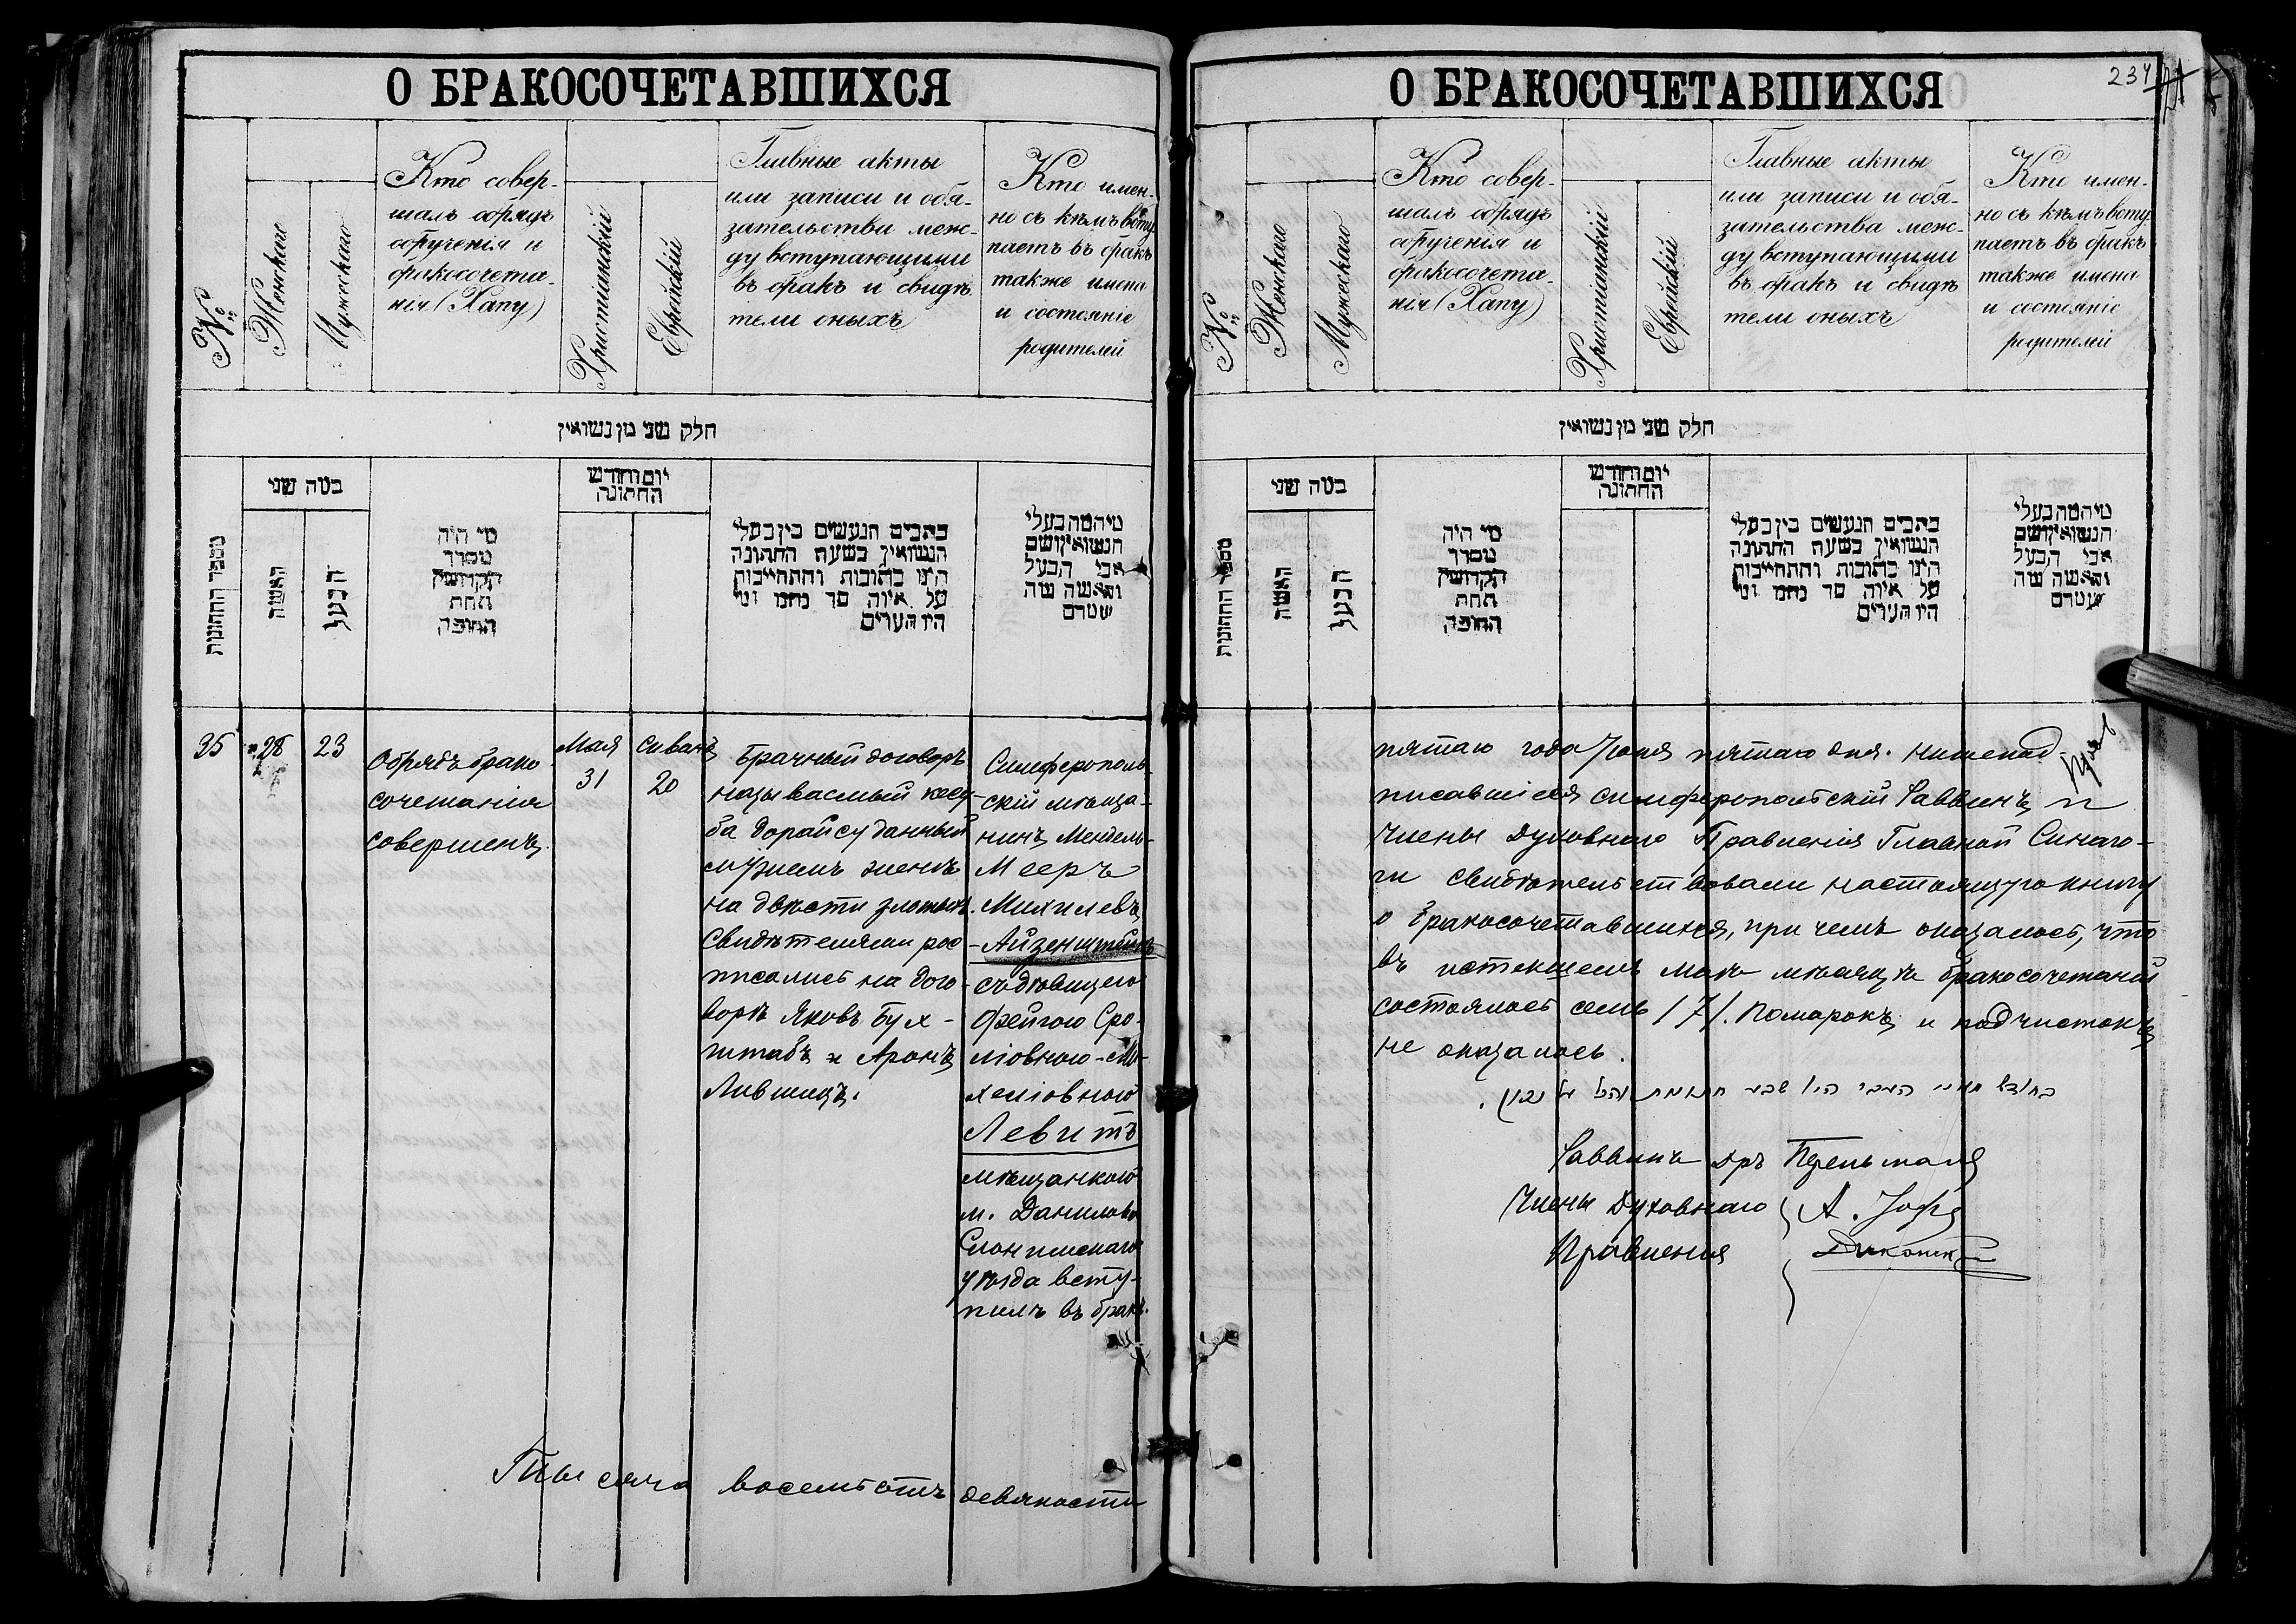 О БРАКОСОЧЕТАВШИХСЯ
№
Женскаго
Мужскаго
Кто совер-
шалъ обрядъ
обрученія и
бракосочета-
нія (Хапу)
Христіанскій
Еврейскій
Главные акты
или записи и обя-
зательства меж-
ду вступающими
въ бракъ и свидѣ
тели оныхъ
Кто имен-
но съ кѣмъ всту
паетъ въ бракъ
также имена
и состояніе
родителей
חלק שני מן נשואין
מספר החתונות
כמה שני
האשה
הבעל
מי היה
מסדר
הקדושין
תחת
החופה
יום וחודש
החתונה
כתבים הנעשים בין בעלי
הנשואין בשעת החתונה
היינו כתובות והתחייבות
על איזה סך נחמו ומי
היו העדים
מי המה בעלי
הנשואין ושם
אבי הבעל
והאשה ומה
שטרם
35
28
23
Обрядъ брако
сочетанія
совершенъ
Мая
31
Сиванъ
20
Брачный договоръ
называемый кесу-
ба дорайсу данный
мужемъ женѣ
на двѣсти злотыхъ.
Свидѣтелями рос-
писались на дого-
ворѣ Яковъ Бух-
штабъ и Аронъ
Лившицъ.
Симферополь-
скій мѣща-
нинъ Мендель-
Мееръ
Михилевъ
Айзенштейнъ
съ дѣвицею
Фейгою Сро-
ліовною-Ми-
хеліовною
Левитъ
мѣщанкою
м. Данилово
Слонимскаго
уѣзда всту-
пилъ въ бракъ.
Тысяча восемьсотъ девяносто
О БРАКОСОЧЕТАВШИХСЯ
234
№
Женскаго
Мужскаго
Кто совер-
шалъ обрядъ
обрученія и
бракосочета-
нія (Хапу)
Христіанскій
Еврейскій
Главные акты
или записи и обя-
зательства меж-
ду вступающими
въ бракъ и свидѣ
тели оныхъ
Кто имен-
но съ кѣмъ всту
паетъ въ бракъ
также имена
и состояніе
родителей
חלק שני מן נשואין
מספר החתונות
כמה שני
האשה
הבעל
מי היה
מסדר
הקדושין
תחת
החופה
יום וחודש
החתונה
כתבים הנעשים בין בעלי
הנשואין בשעת החתונה
היינו כתובות והתחייבות
על איזה סך נחמו ומי
היו העדים
מי המה בעלי
הנשואין ושם
אבי הבעל
והאשה ומה
שטרם
пятаго года Іюня пятаго дня. нижепод-
писавшіеся симферопольскій Раввинъ и
Члены Духовнаго Правленія Главной Синаго-
ги свидѣтельствовали настоящую книгу
о бракосочетавшихся, при чемъ оказалось, что
въ истекшемъ Маѣ мѣсяцѣ бракосочетаній
состоялось семь /7/. Помарокъ и подчистокъ
не оказалось.
Раввинъ Дръ Перельманъ
Члены Духовнаго А. Іофе
Правленія